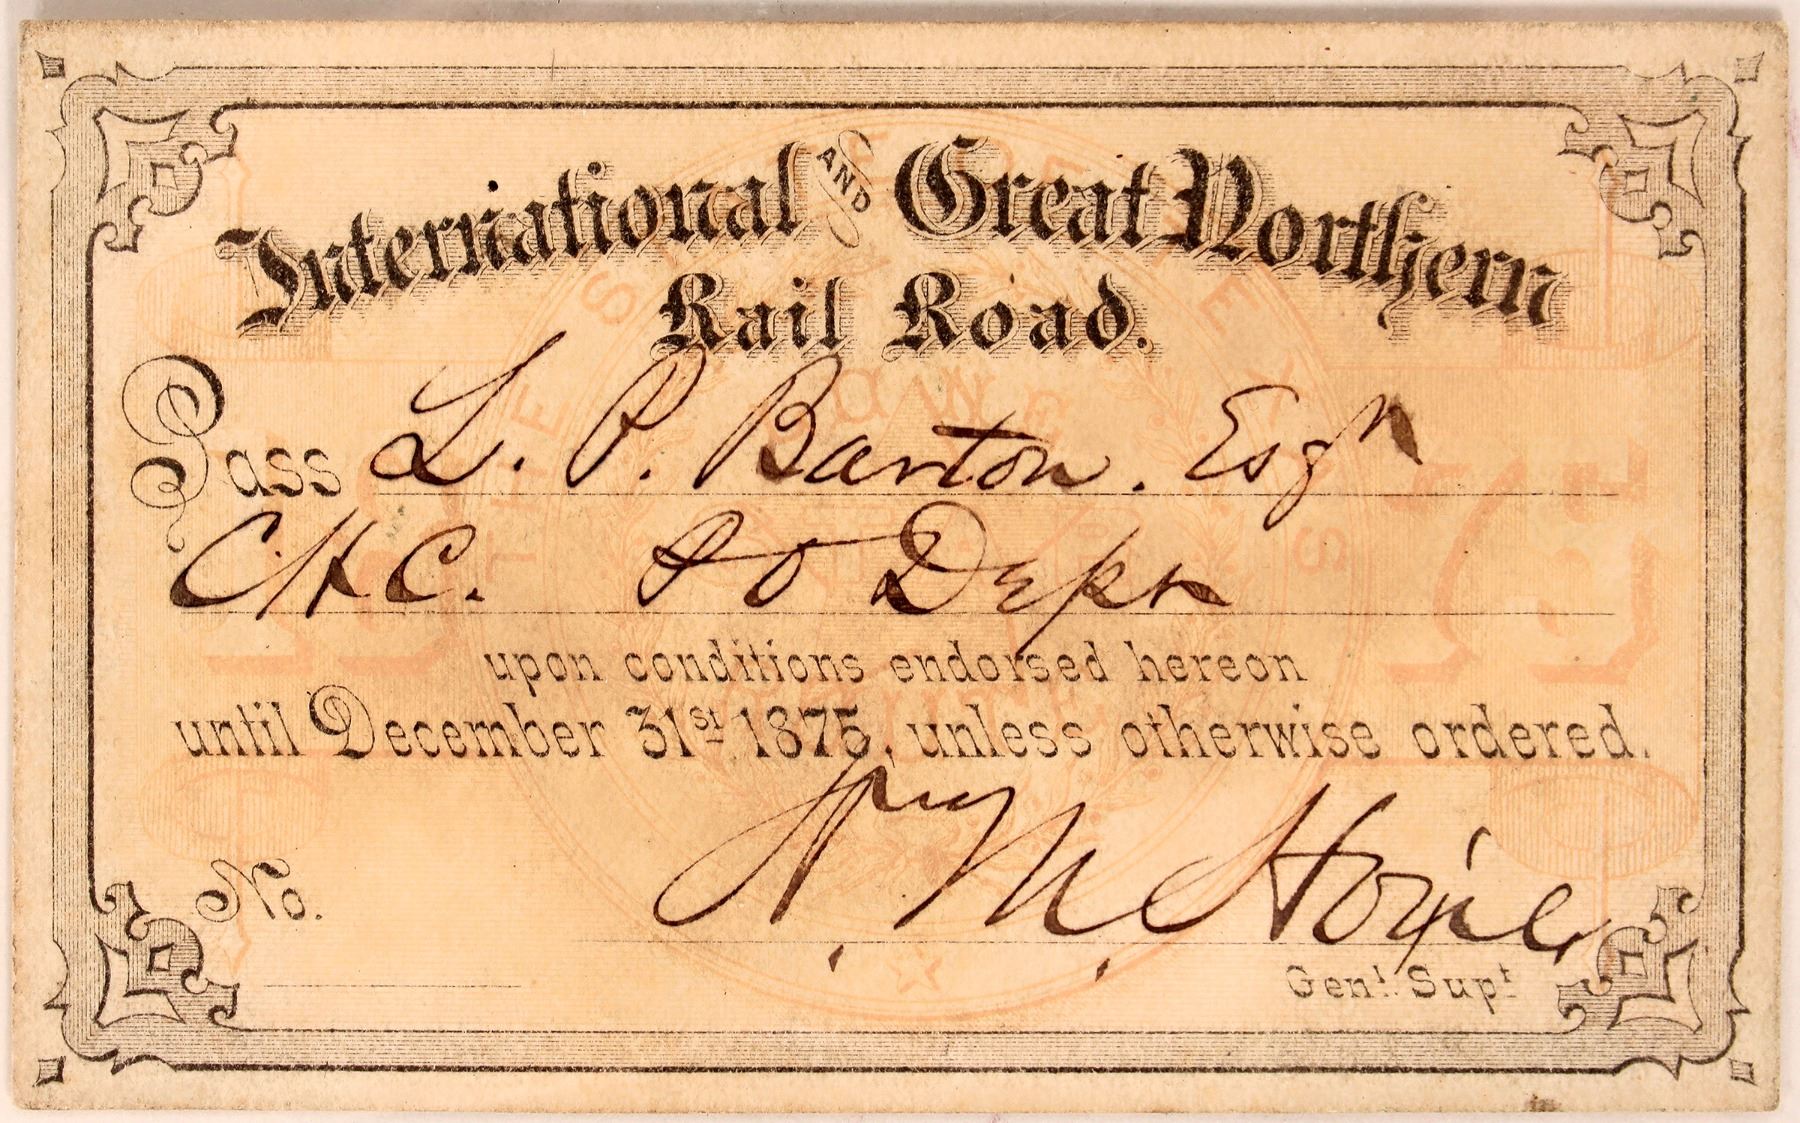 International AND Great Northern
Rail Road.
Pass L. P. Barton. Esqr
to Dept
upon conditions endorsed hereon
until December 31st 1875, unless otherwise ordered.
No.
H. M. Hoxie
Genl. Supt
THE STATE OF TEXAS